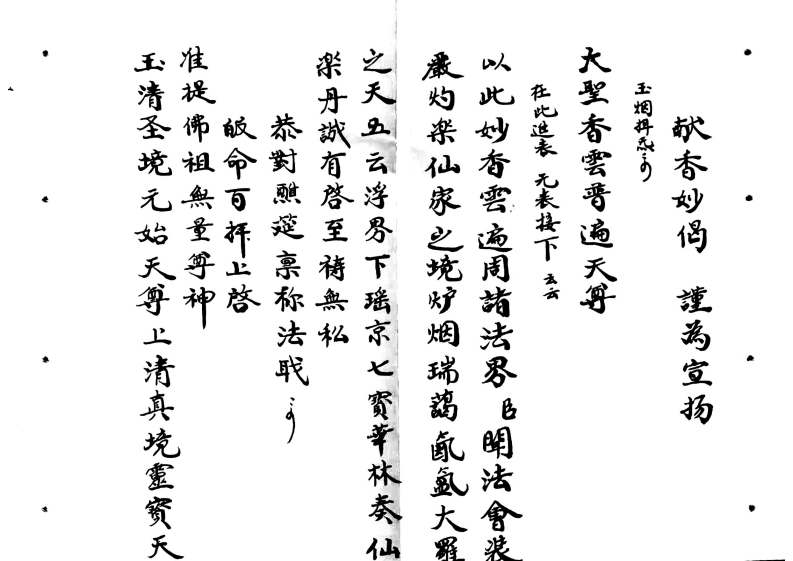 献香妙偈　謹為宣扬
玉烟拜
大聖香雲普遍天尊
在此进表　无表接下　云云
以此妙香雲遍周諸法界　臣開法會裝
嚴灼楽仙家之境炉烟瑞藹氤氲大羅
之天五云浮界下瑶京七寳華林奏仙
楽丹誠有啓至祷無私
恭對醮筵禀称法职
皈命百拜上啓
准提佛祖無量尊神
玉清圣境元始天尊上清真境靈寳天